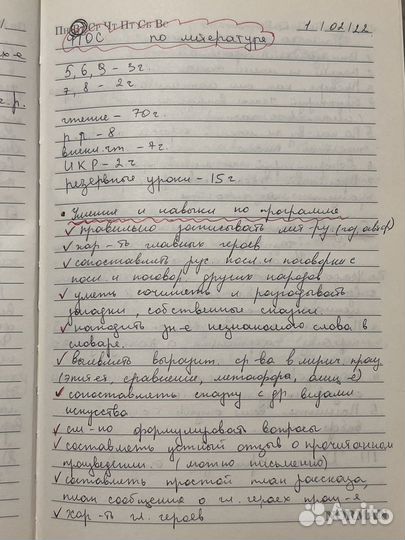 Пн Вт Ср Чт Пт Сб Вс 1 | 02 | 22
ФГОС по литературе
5, 6, 9 - 3 г.
7, 8 - 2 г.
чтение - 70 г.
р. р. - 8
внекл. чт. - 7 г.
ИКР - 2 ч
резервные уроки - 15 г.
• Умения и навыки по программе
✓ правильно записывать лит-ру (год, автор)
✓ хар-ть главных героев
✓ сопоставлять рус. посл и поговорки с
посл и поговор. других народов
✓ уметь сочинять и разгадывать
загадки, собственные сказки
✓ находить зн-е незнакомого слова в
словаре.
✓ выявлять выразит. ср-ва в лирич. произ.
(эпитет, сравнения, метафора, олиц-е)
✓ сопоставлять сказку с др. видами
искусства
✓ см-но формулировать вопросы
✓ составлять устный отзыв о прочитанном
произведении. (можно письменно)
✓ составлять простой план рассказа,
план сообщения о гл. героях произ-я
✓ хар-ть гл. героев
Avito